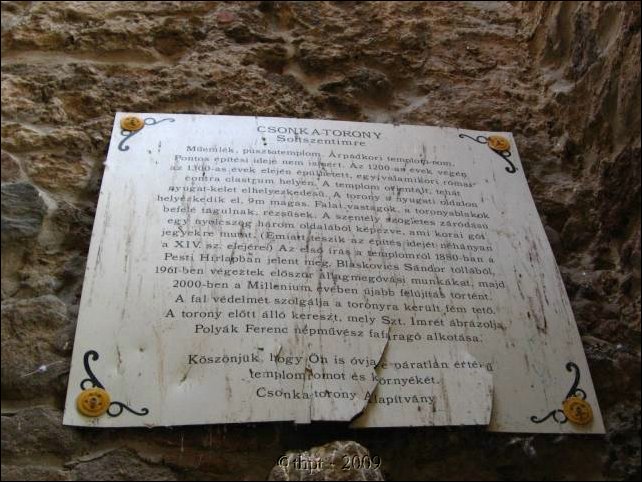 CSONKATORONY
Soltszentimre
Műemlék, pusztatemplom. Árpádkori templom-rom.
Pontos építési ideje nem ismert. Az 1200-as évek végén
az 1300-as évek elején épülhetett, egy
castrum helyén. A templom orientált, tehát
nyugat-kelet elhelyezkedésű. A torony a nyugati oldalon
helyezkedik el, 9m magas. Falai vastagok, a toronyablakok
befelé tágulnak, rézsűsek. A szentély szögletes záródású
egy nyolcszög három oldalából képezve, ami korai gót
jegyekre mutat. (Emiatt teszik az építés idejét néhányan
a XIV. sz. elejére.) Az első írás a templomról 1880-ban a
Pesti Hírlapban jelent meg, Blaskovics Sándor tollából,
1961-ben végeztek először állagmegóvási munkákat, majd
2000-ben a Millenium évében újabb felújítás történt.
A fal védelmét szolgálja a toronyra került fém tető.
A torony előtt álló kereszt, mely Szt. Imrét ábrázolja,
Polyák Ferenc népművész fafaragó alkotása.
Köszönjük, hogy Ön is óvja e páratlan értékű
templomromot és környékét.
Csonka-torony Alapítvány
©thpt - 2009